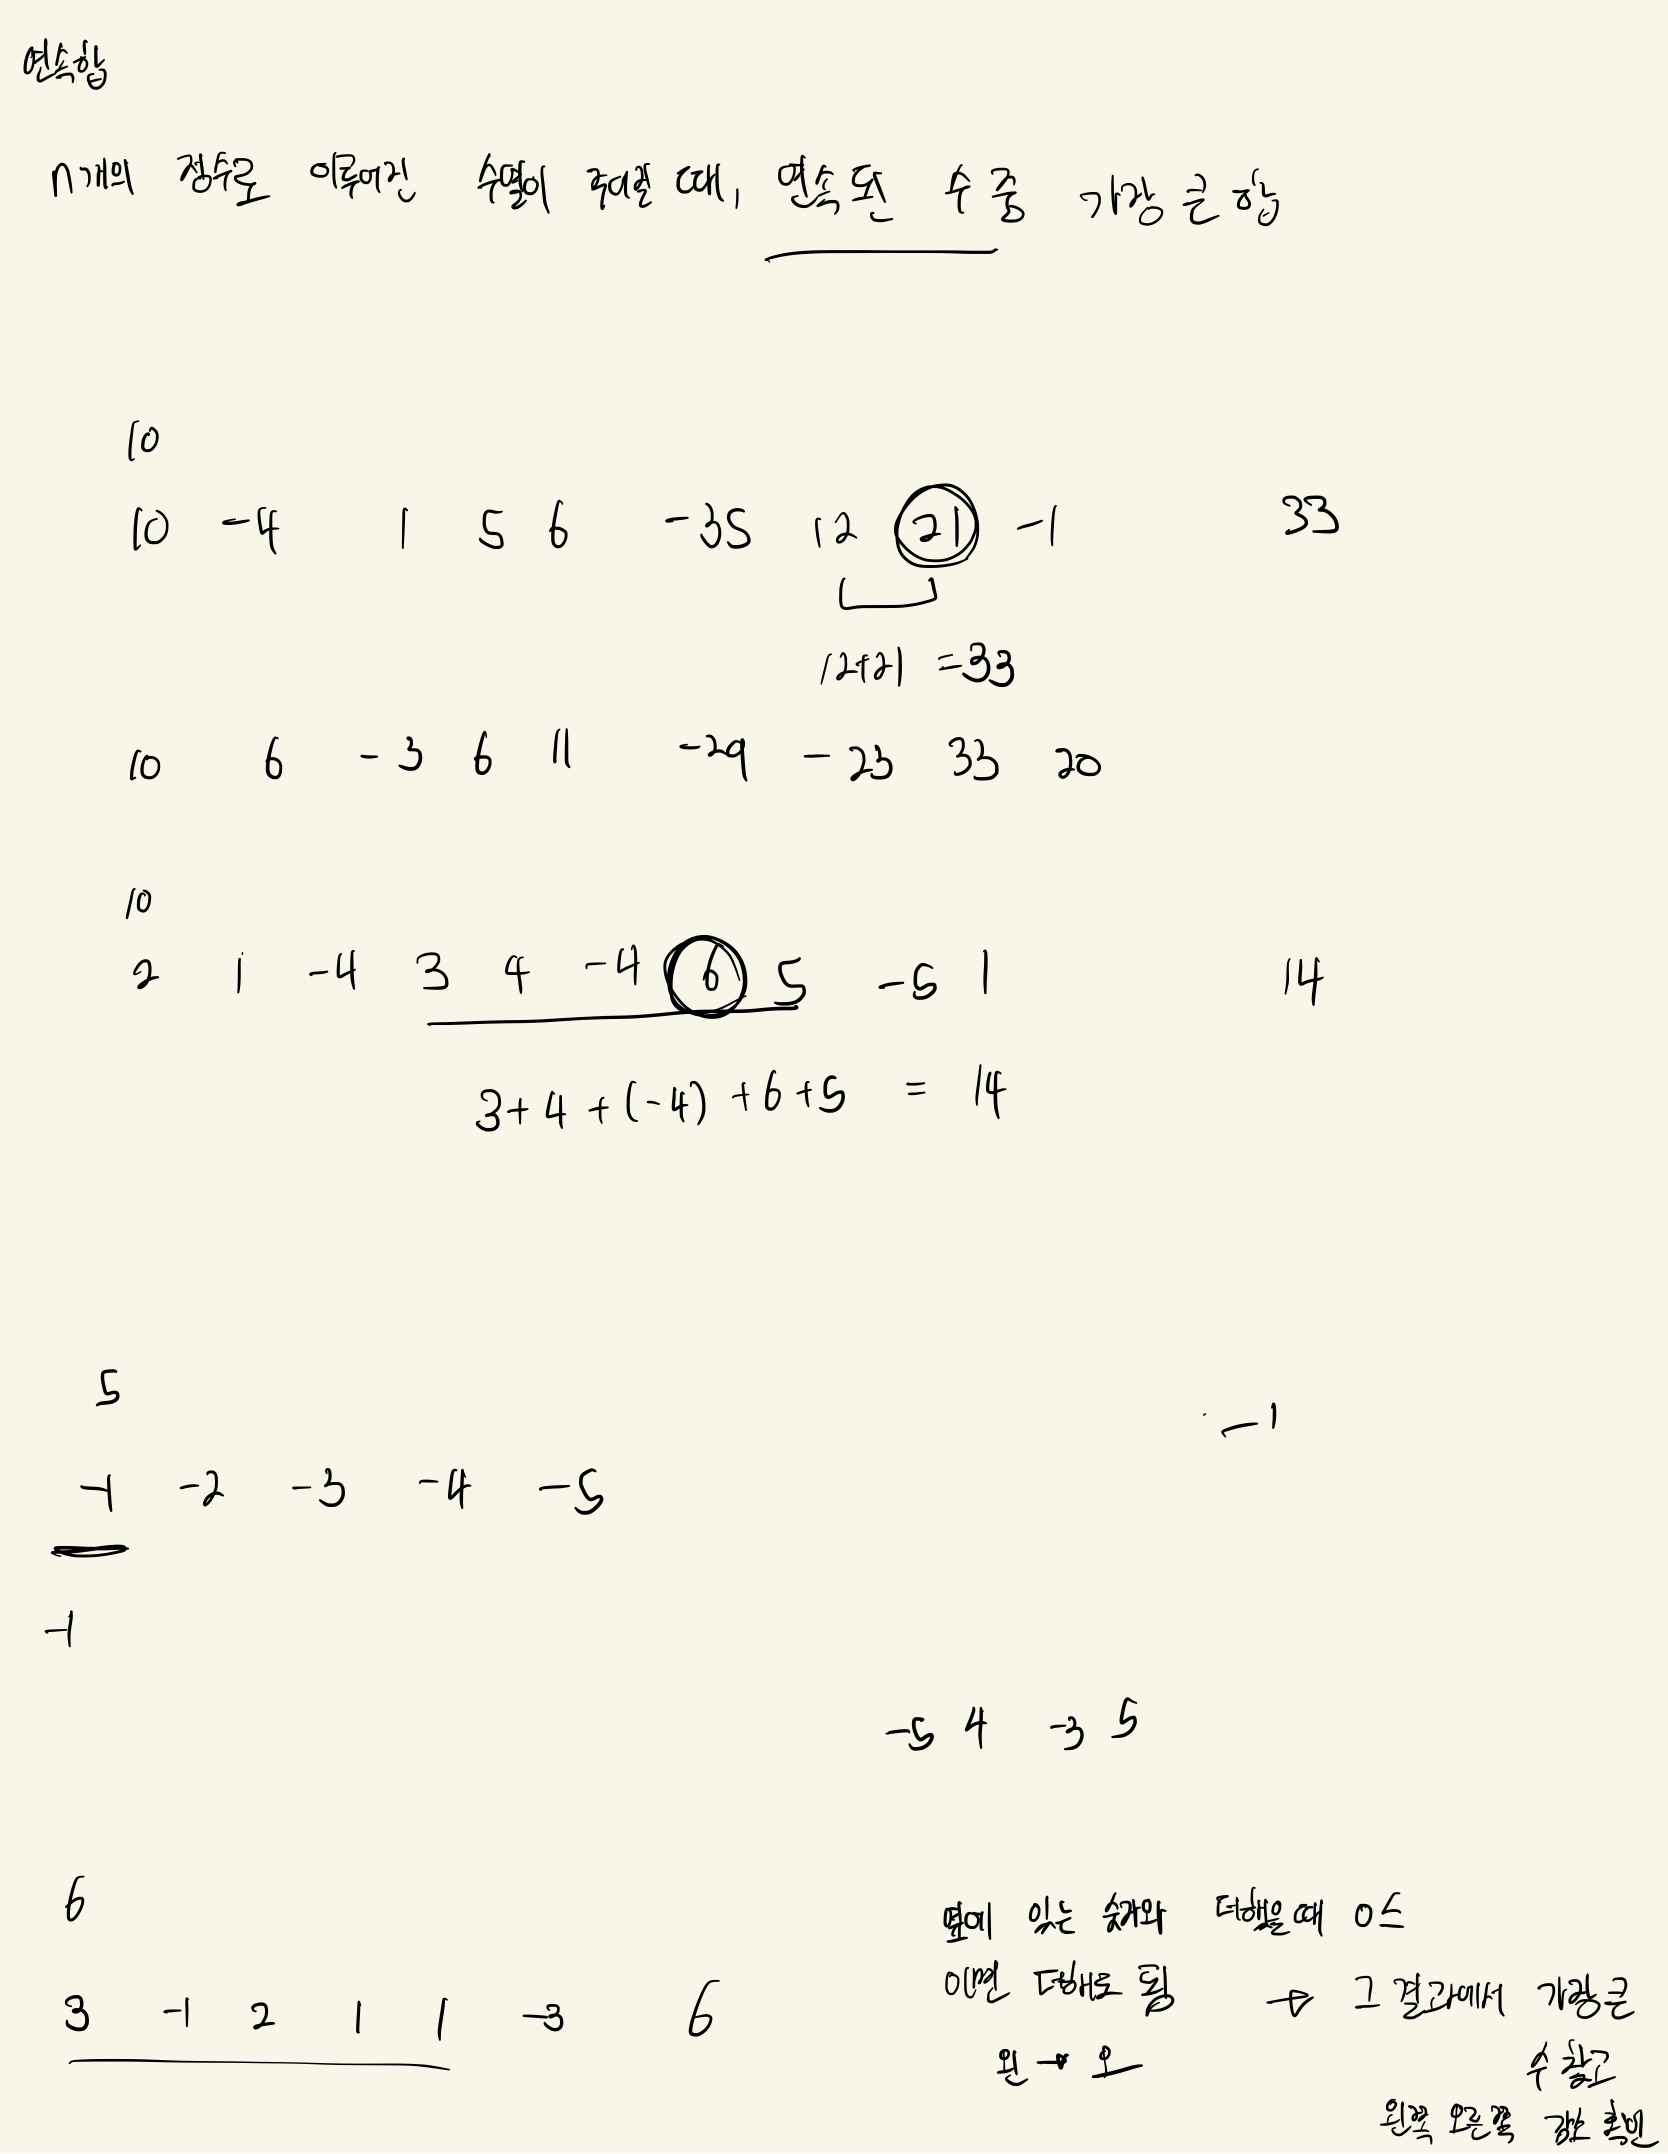 연속합
n개의 정수로 이루어진 수열이 주어질 때, 연속된 수 중 가장 큰 합
10
10 -4 1 5 6 -35 12 21 -1 33
12+21 =33
10 6 -3 6 11 -29 -23 33 20
10
2 1 -4 3 4 -4 6 5 -5 1 14
3+4+(-4)+6+5 = 14
5
-1
-1 -2 -3 -4 -5
-1
-5 4 -3 5
6
3 -1 2 1 1 -3 6
옆에 있는 숫자와 더했을때 0≤
이면 더해도 됨 → 그 결과에서 가장 큰
왼 → 오 수 찾고
왼쪽 오른쪽 감소 확인